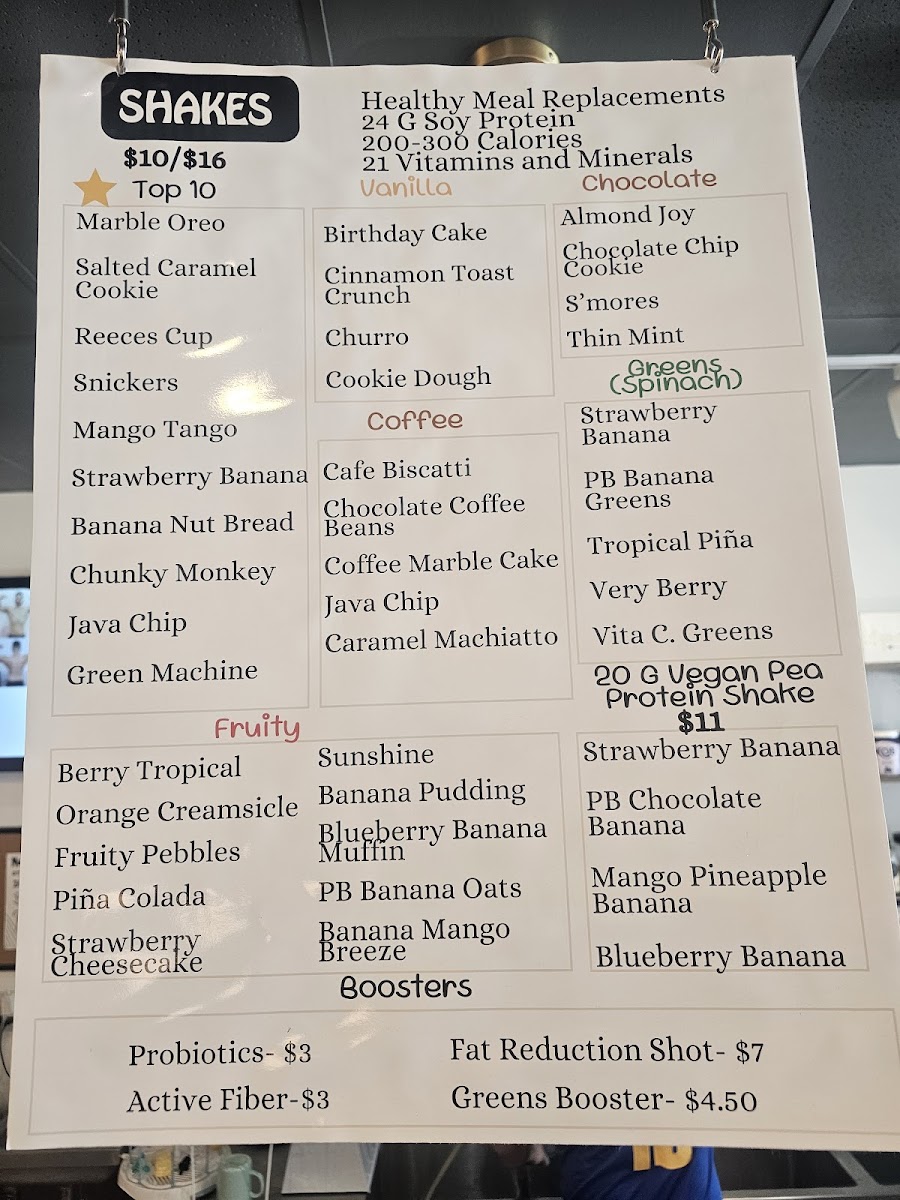 SHAKES
$10/$16
Top 10
Healthy Meal Replacements
24 G Soy Protein
200-300 Calories
21 Vitamins and Minerals
Marble Oreo
Salted Caramel
Cookie
Reeces Cup
Snickers
Mango Tango
Strawberry Banana
Banana Nut Bread
Chunky Monkey
Java Chip
Green Machine
Vanilla
Birthday Cake
Cinnamon Toast
Crunch
Churro
Cookie Dough
Coffee
Cafe Biscatti
Chocolate Coffee
Beans
Coffee Marble Cake
Java Chip
Caramel Machiatto
Chocolate
Almond Joy
Chocolate Chip
Cookie
S'mores
Thin Mint
Greens
(Spinach)
Strawberry
Banana
PB Banana
Greens
Tropical Piña
Very Berry
Vita C. Greens
Fruity
Berry Tropical
Orange Creamsicle
Fruity Pebbles
Piña Colada
Strawberry
Cheesecake
Sunshine
Banana Pudding
Blueberry Banana
Muffin
PB Banana Oats
Banana Mango
Breeze
20 G Vegan Pea
Protein Shake
$11
Strawberry Banana
PB Chocolate
Banana
Mango Pineapple
Banana
Blueberry Banana
Boosters
Probiotics- $3
Active Fiber-$3
Fat Reduction Shot- $7
Greens Booster- $4.50